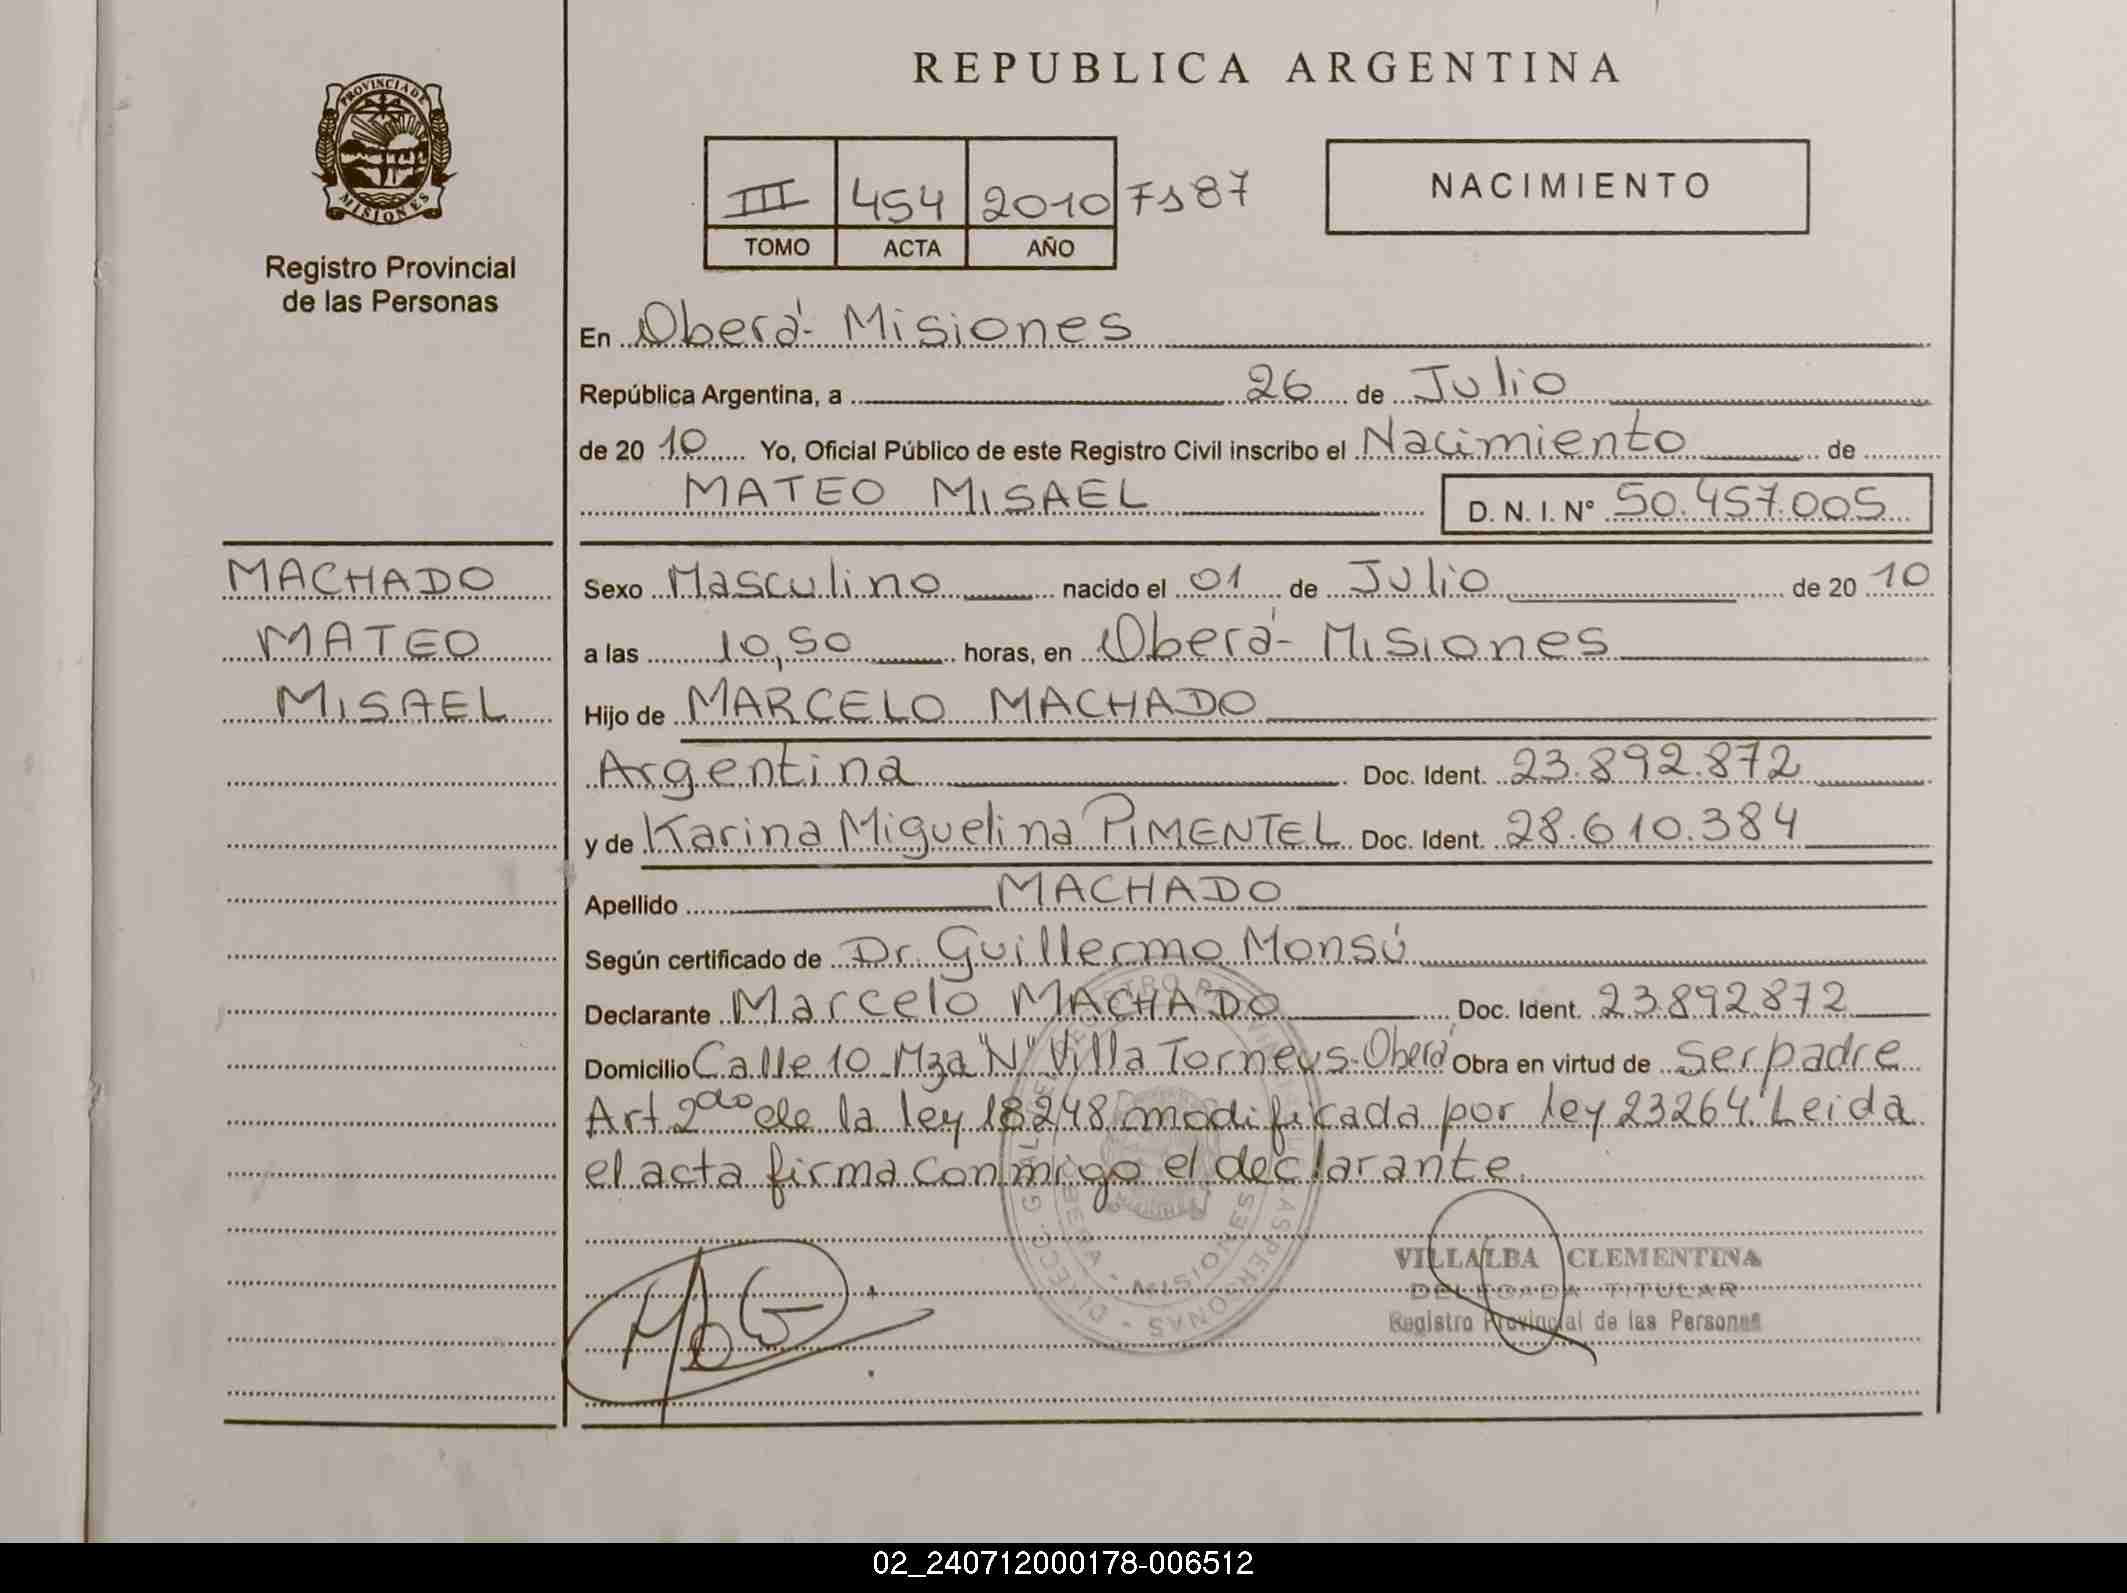 REPUBLICA ARGENTINA
PROVINCIA DE MISIONES
Registro Provincial
de las Personas
III 454 2010 Fs 87
TOMO ACTA AÑO
NACIMIENTO
En Oberá - Misiones
República Argentina, a 26 de Julio
de 20 10 Yo, Oficial Público de este Registro Civil inscribo el Nacimiento de
MATEO MISAEL D. N. I. N° 50.457.005
MACHADO
MATEO
MISAEL
Sexo Masculino nacido el 01 de Julio de 20 10
a las 10,50 horas, en Oberá - Misiones
Hijo de MARCELO MACHADO
Argentina Doc. Ident. 23.892.872
y de Karina Miguelina PIMENTEL Doc. Ident. 28.610.384
Apellido MACHADO
Según certificado de Dr. Guillermo Monsú
Declarante Marcelo MACHADO Doc. Ident. 23892872
Domicilio Calle 10 Mza "N" Villa Torneus - Oberá Obra en virtud de Ser padre
Art 2do de la ley 18248 modificada por ley 23264. Leida
el acta firma conmigo el declarante.
VILLALBA CLEMENTINA
DELEGADA TITULAR
Registro Provincial de las Personas
02_240712000178-006512